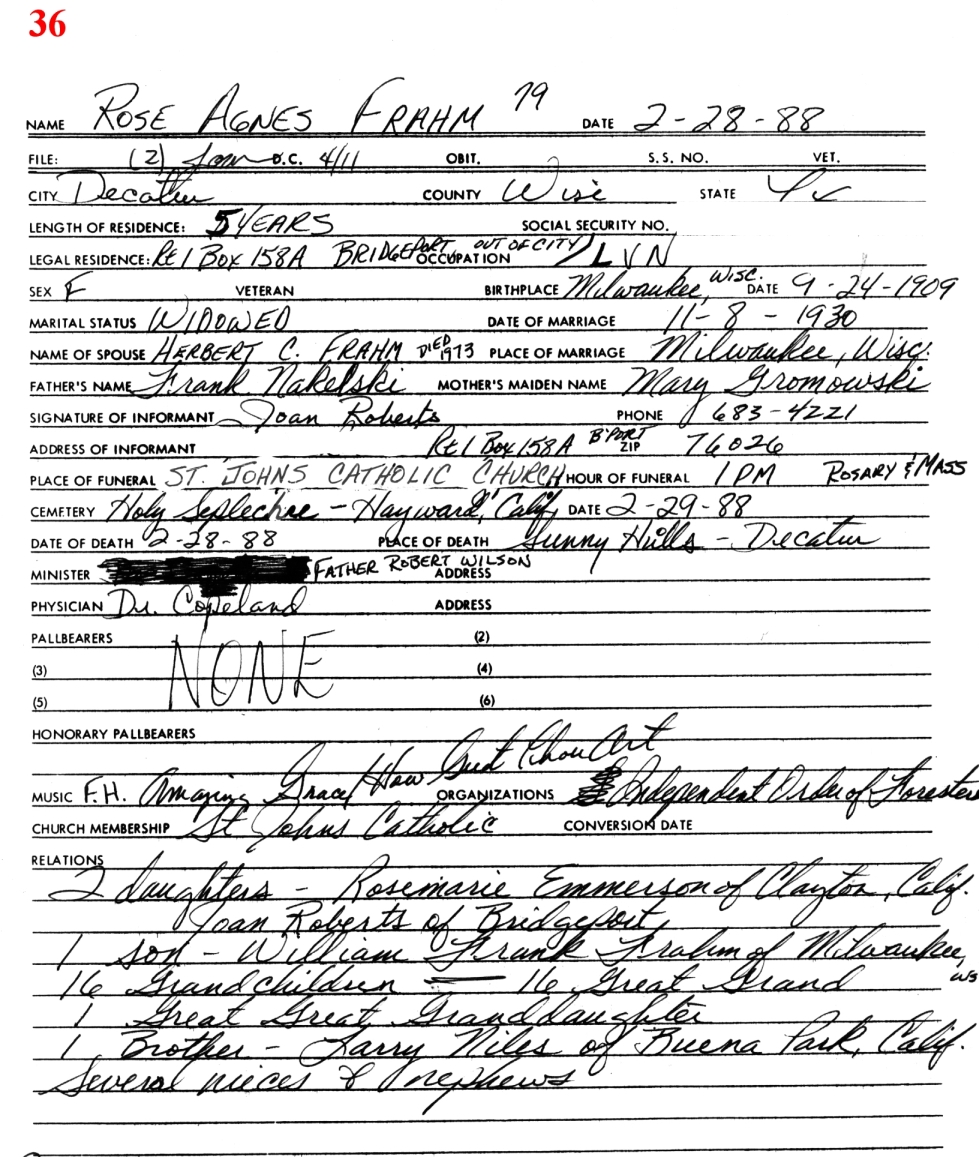 36
NAME ROSE AGNES FRAHM 79 DATE 2-28-88
FILE: (2) D.C. 4/11 OBIT. S.S. NO. VET.
CITY Decatur COUNTY Wise STATE Tx
LENGTH OF RESIDENCE: 5 YEARS SOCIAL SECURITY NO.
LEGAL RESIDENCE: Rt 1 Box 158A BRIDGEPORT OUT OF CITY OCCUPATION LVN
SEX F VETERAN BIRTHPLACE Milwaukee, WISC. DATE 9-24-1909
MARITAL STATUS WIDOWED DATE OF MARRIAGE 11-8-1930
NAME OF SPOUSE HERBERT C. FRAHM DIED 1973 PLACE OF MARRIAGE Milwaukee, Wisc.
FATHER'S NAME Frank Nakelski MOTHER'S MAIDEN NAME Mary Gromowski
SIGNATURE OF INFORMANT Joan Roberts PHONE 683-4221
ADDRESS OF INFORMANT Rt 1 Box 158A B'PORT ZIP 76026
PLACE OF FUNERAL ST. JOHNS CATHOLIC CHURCH HOUR OF FUNERAL 1 PM ROSARY & MASS
CEMETERY Holy Seplechre - Hayward, Calif, DATE 2-29-88
DATE OF DEATH 2-28-88 PLACE OF DEATH Sunny Hills - Decatur
MINISTER FATHER ROBERT WILSON ADDRESS
PHYSICIAN Dr. Copeland ADDRESS
PALLBEARERS (2)
(3) NONE (4)
(5) (6)
HONORARY PALLBEARERS
MUSIC F.H. Amazing Grace How Great Thou Art ORGANIZATIONS Independent Order of Foresters
CHURCH MEMBERSHIP St Johns Catholic CONVERSION DATE
RELATIONS
2 daughters - Rosemarie Emmerson of Clayton, Calif.
Joan Roberts of Bridgeport,
1 son - William Frank Frahm of Milwaukee, WS
16 Grandchildren - 16 Great Grand
1 Great Great Granddaughter
1 Brother - Larry Niles of Buena Park, Calif.
Several nieces & nephews